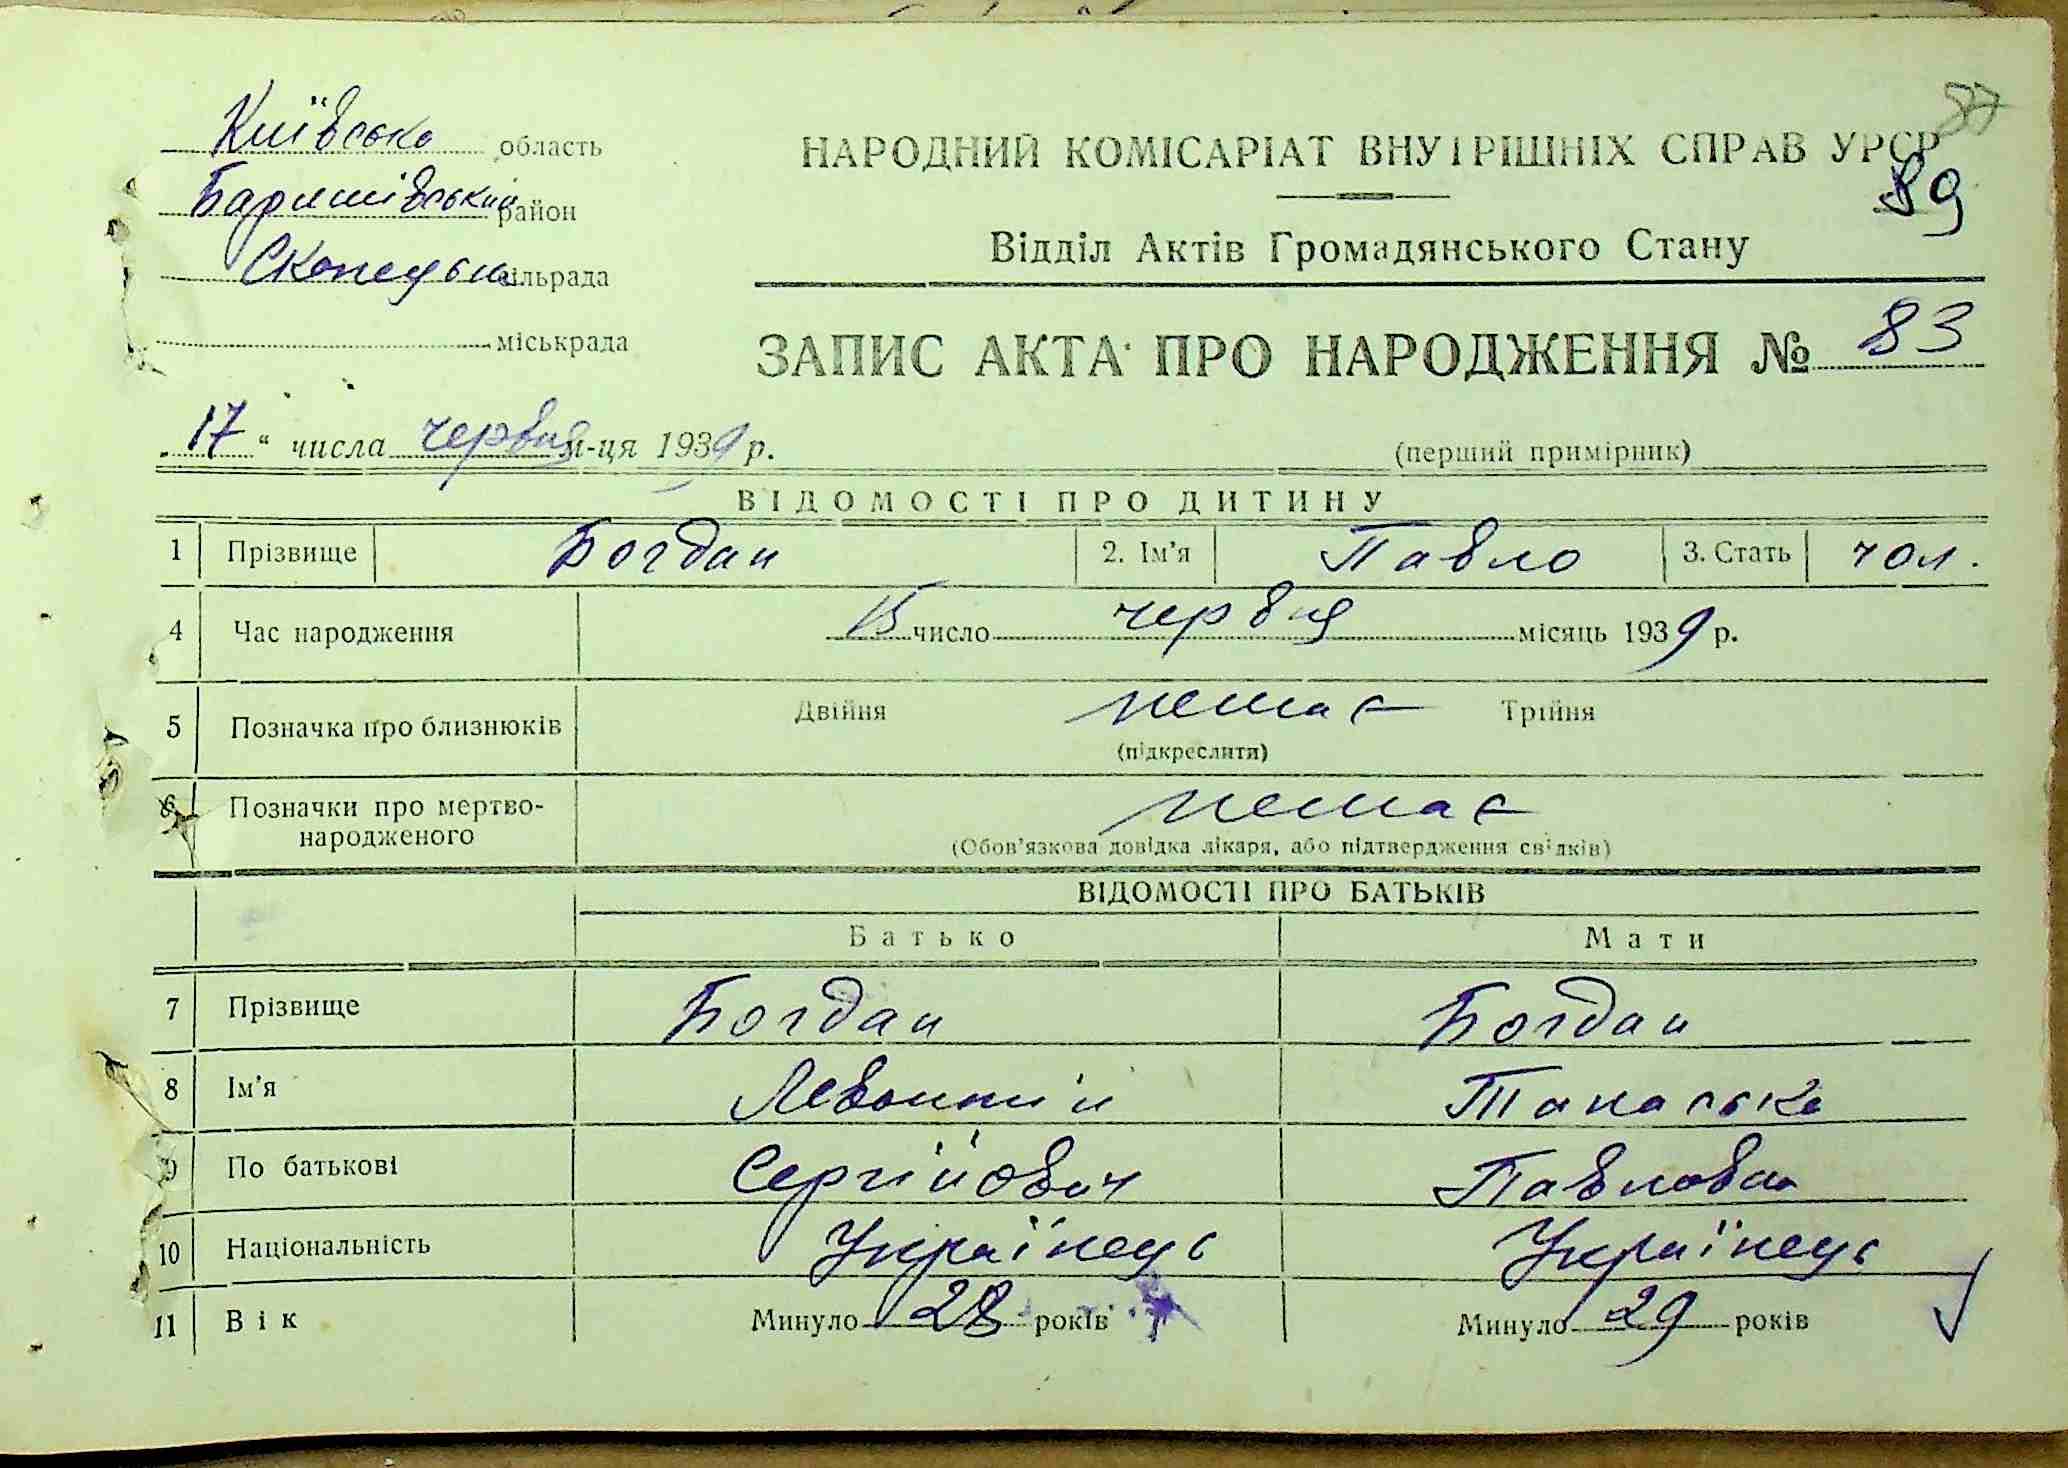 87
Київська область
НАРОДНИЙ КОМІСАРІАТ ВНУТРІШНІХ СПРАВ УРСР
89
Баришівський район
Відділ Актів Громадянського Стану
Скопецька сільрада
міськрада
ЗАПИС АКТА ПРО НАРОДЖЕННЯ № 83
„17“ числа червня м-ця 1939 р.
(перший примірник)
ВІДОМОСТІ ПРО ДИТИНУ
1 Прізвище Богдан 2. Ім’я Павло 3. Стать чол.
4 Час народження 15 число червня місяць 1939 р.
5 Позначка про близнюків Двійня немає Трійня
(підкреслити)
6 Позначки про мертво-
народженого немає
(Обов’язкова довідка лікаря, або підтвердження свідків)
ВІДОМОСТІ ПРО БАТЬКІВ
Батько Мати
7 Прізвище Богдан Богдан
8 Ім’я Левонтій Танаська
9 По батькові Сергійович Павловна
10 Національність Українець Українець
11 Вік Минуло 28 років Минуло 29 років